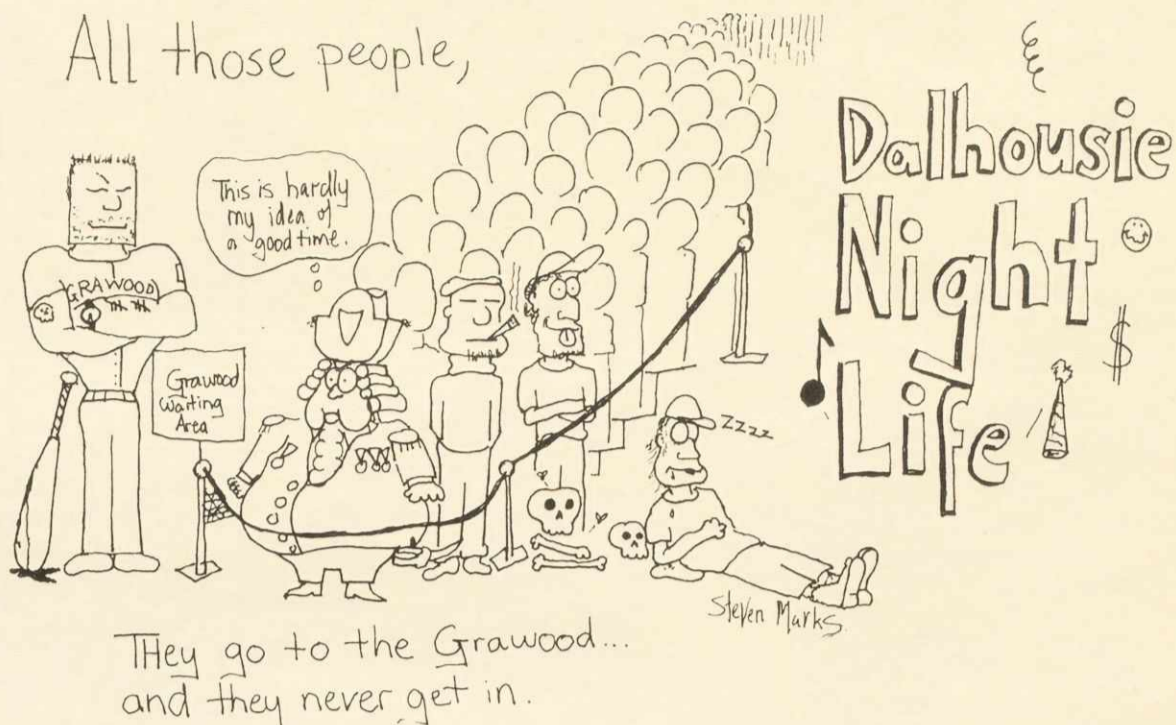 All those people,
Dalhousie
Night
Life
This is hardly
my idea of
a good time.
GRAWOOD
Grawood
Waiting
Area
zzzz
$
Steven Marks
THey go to the Grawood...
and they never get in.